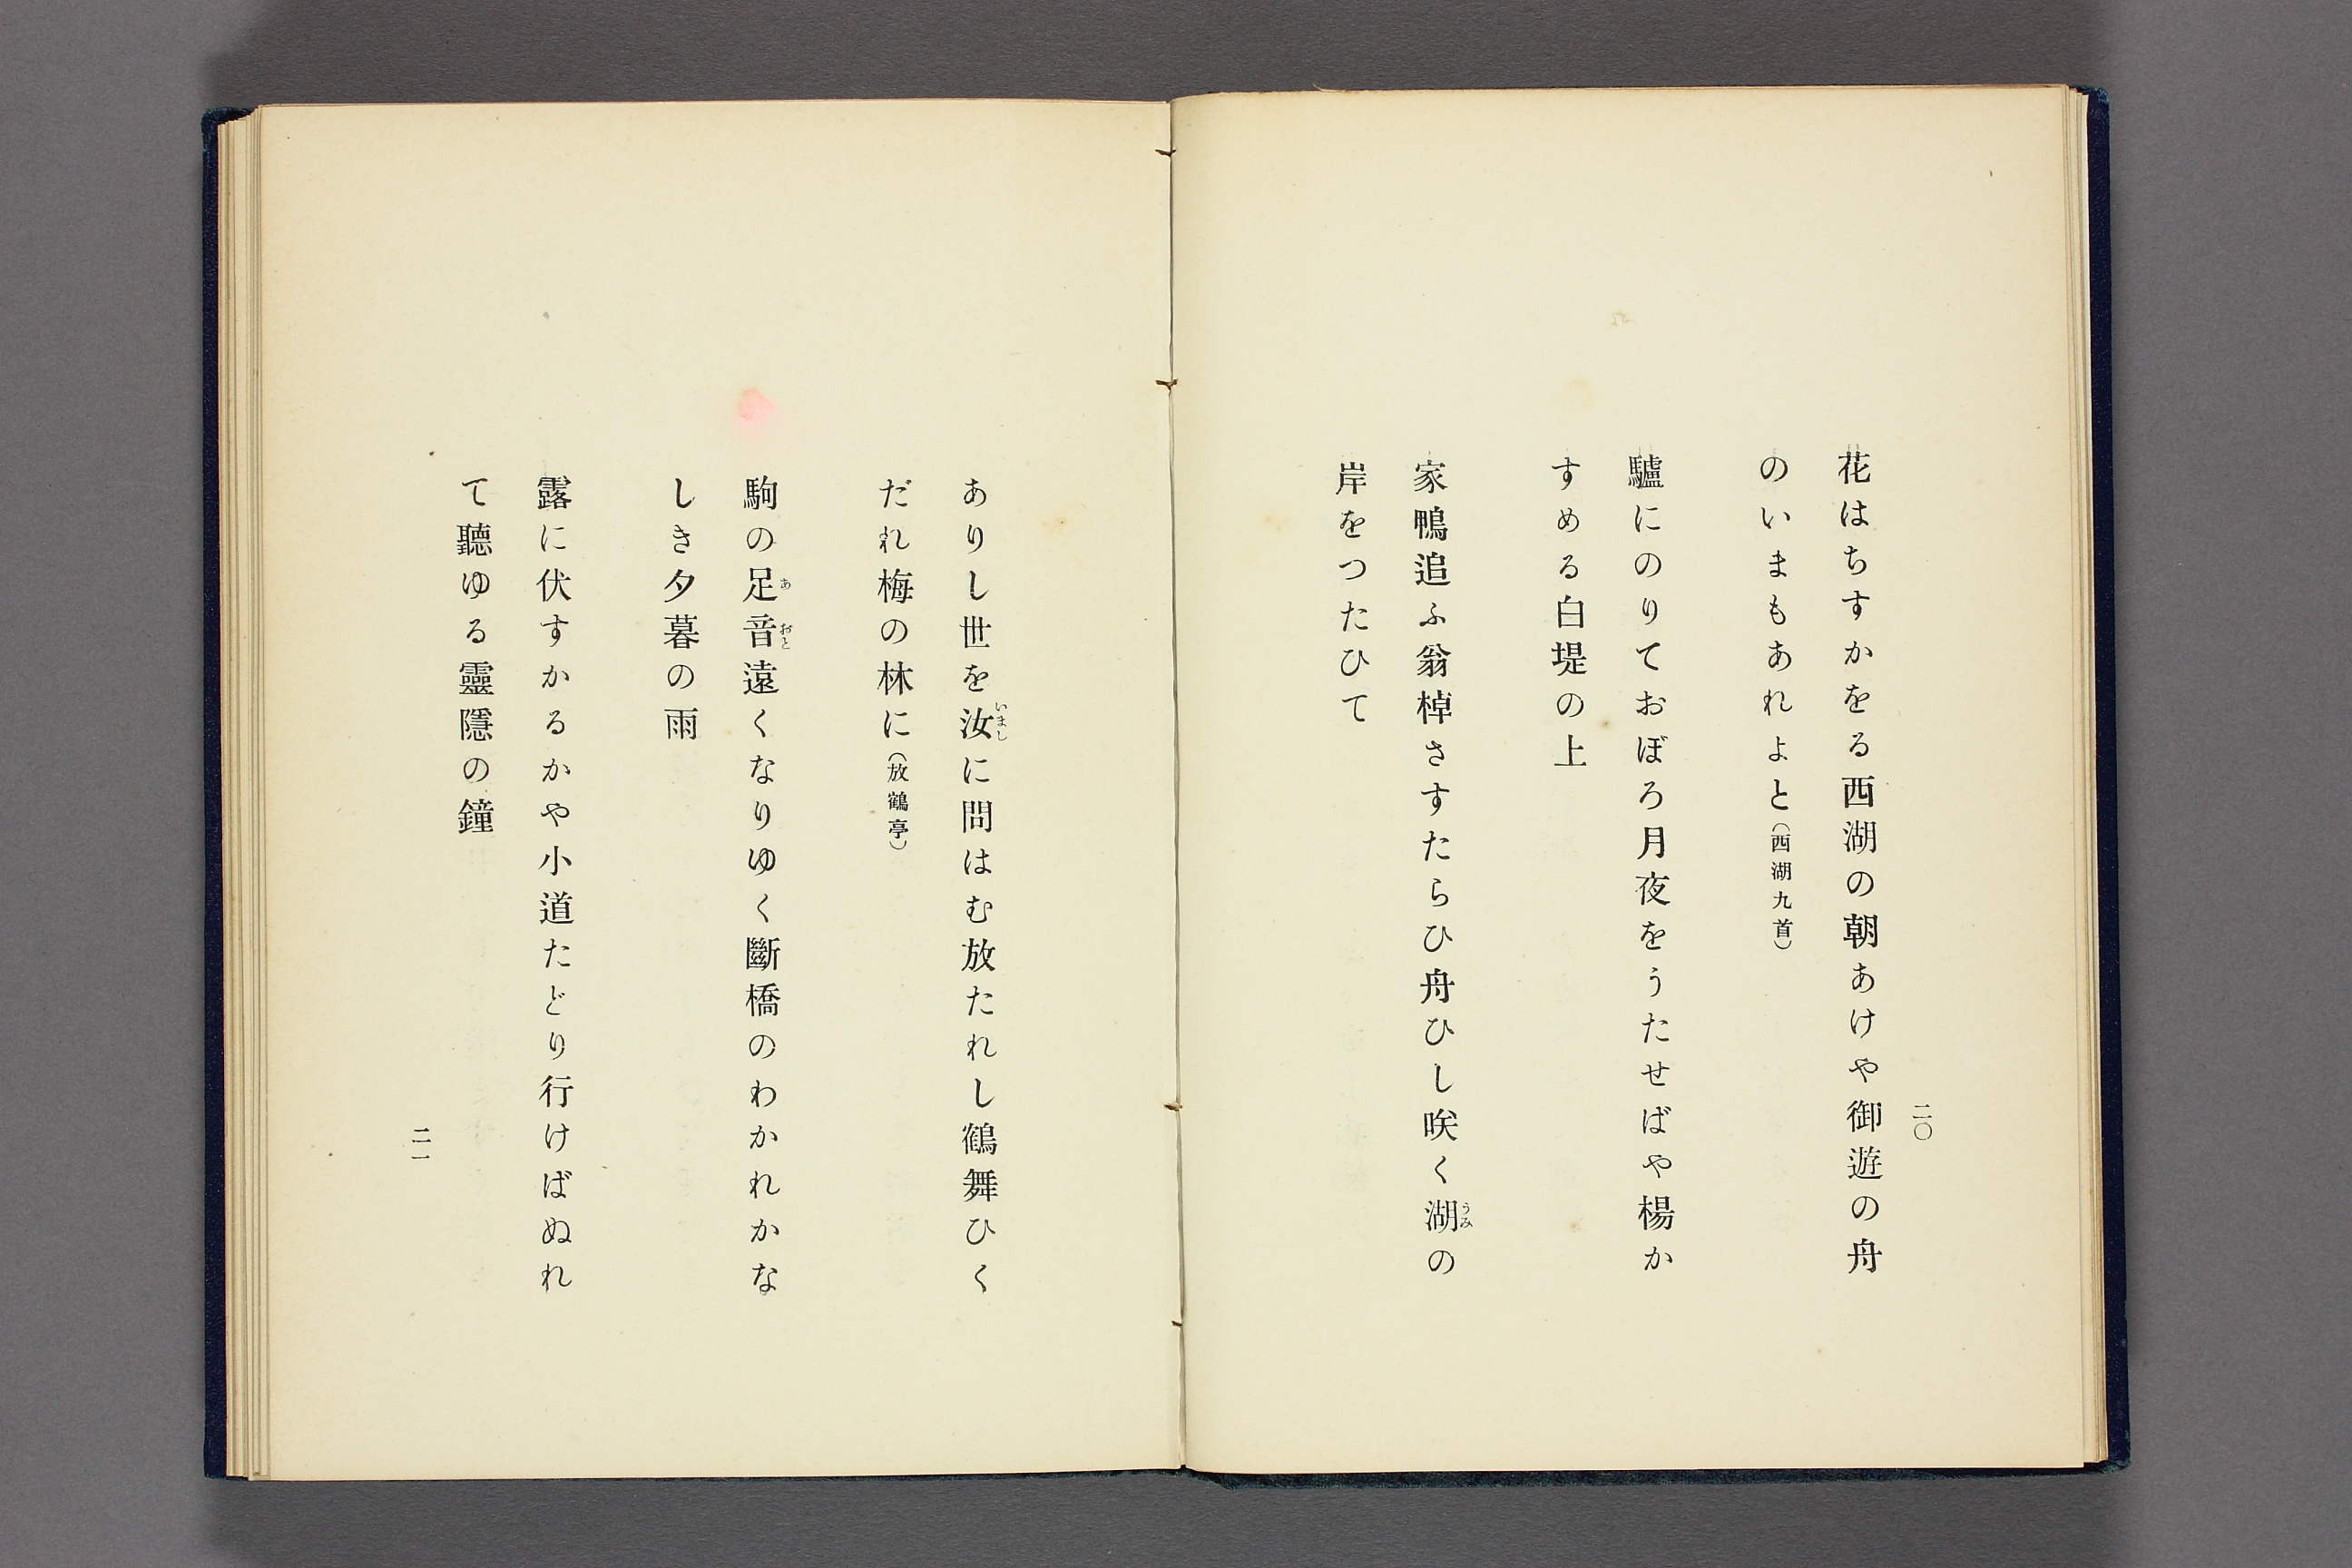 二〇
花はちすかをる西湖の朝あけや御遊の舟
のいまもあれよと(西湖九首)
驢にのりておぼろ月夜をうたせばや楊か
すめる白堤の上
家鴨追ふ翁棹さすたらひ舟ひし咲く湖の
うみ
岸をつたひて
ありし世を汝に問はむ放たれし鶴舞ひく
いまし
だれ梅の林に(放鶴亭)
駒の足音遠くなりゆく斷橋のわかれかな
あ おと
しき夕暮の雨
露に伏すかるかや小道たどり行けばぬれ
て聽ゆる靈隱の鐘
二一